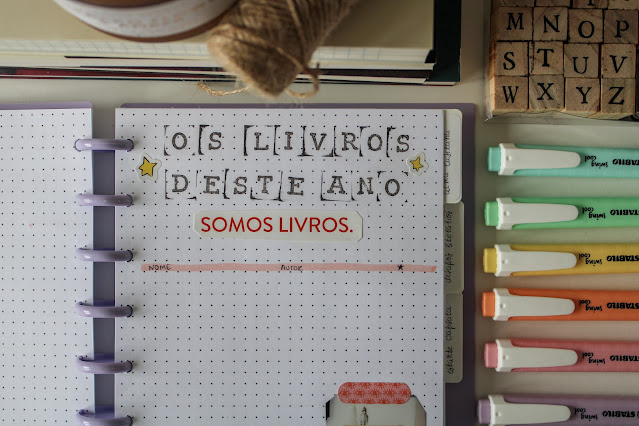 OS LIVROS
DESTE ANO
SOMOS LIVROS.
NOME AUTOR
M N O P
S T U V
W X Y Z
swing cool STABILO
swing cool STABILO
swing cool STABILO
swing cool STABILO
swing cool STABILO
swing cool STABILO